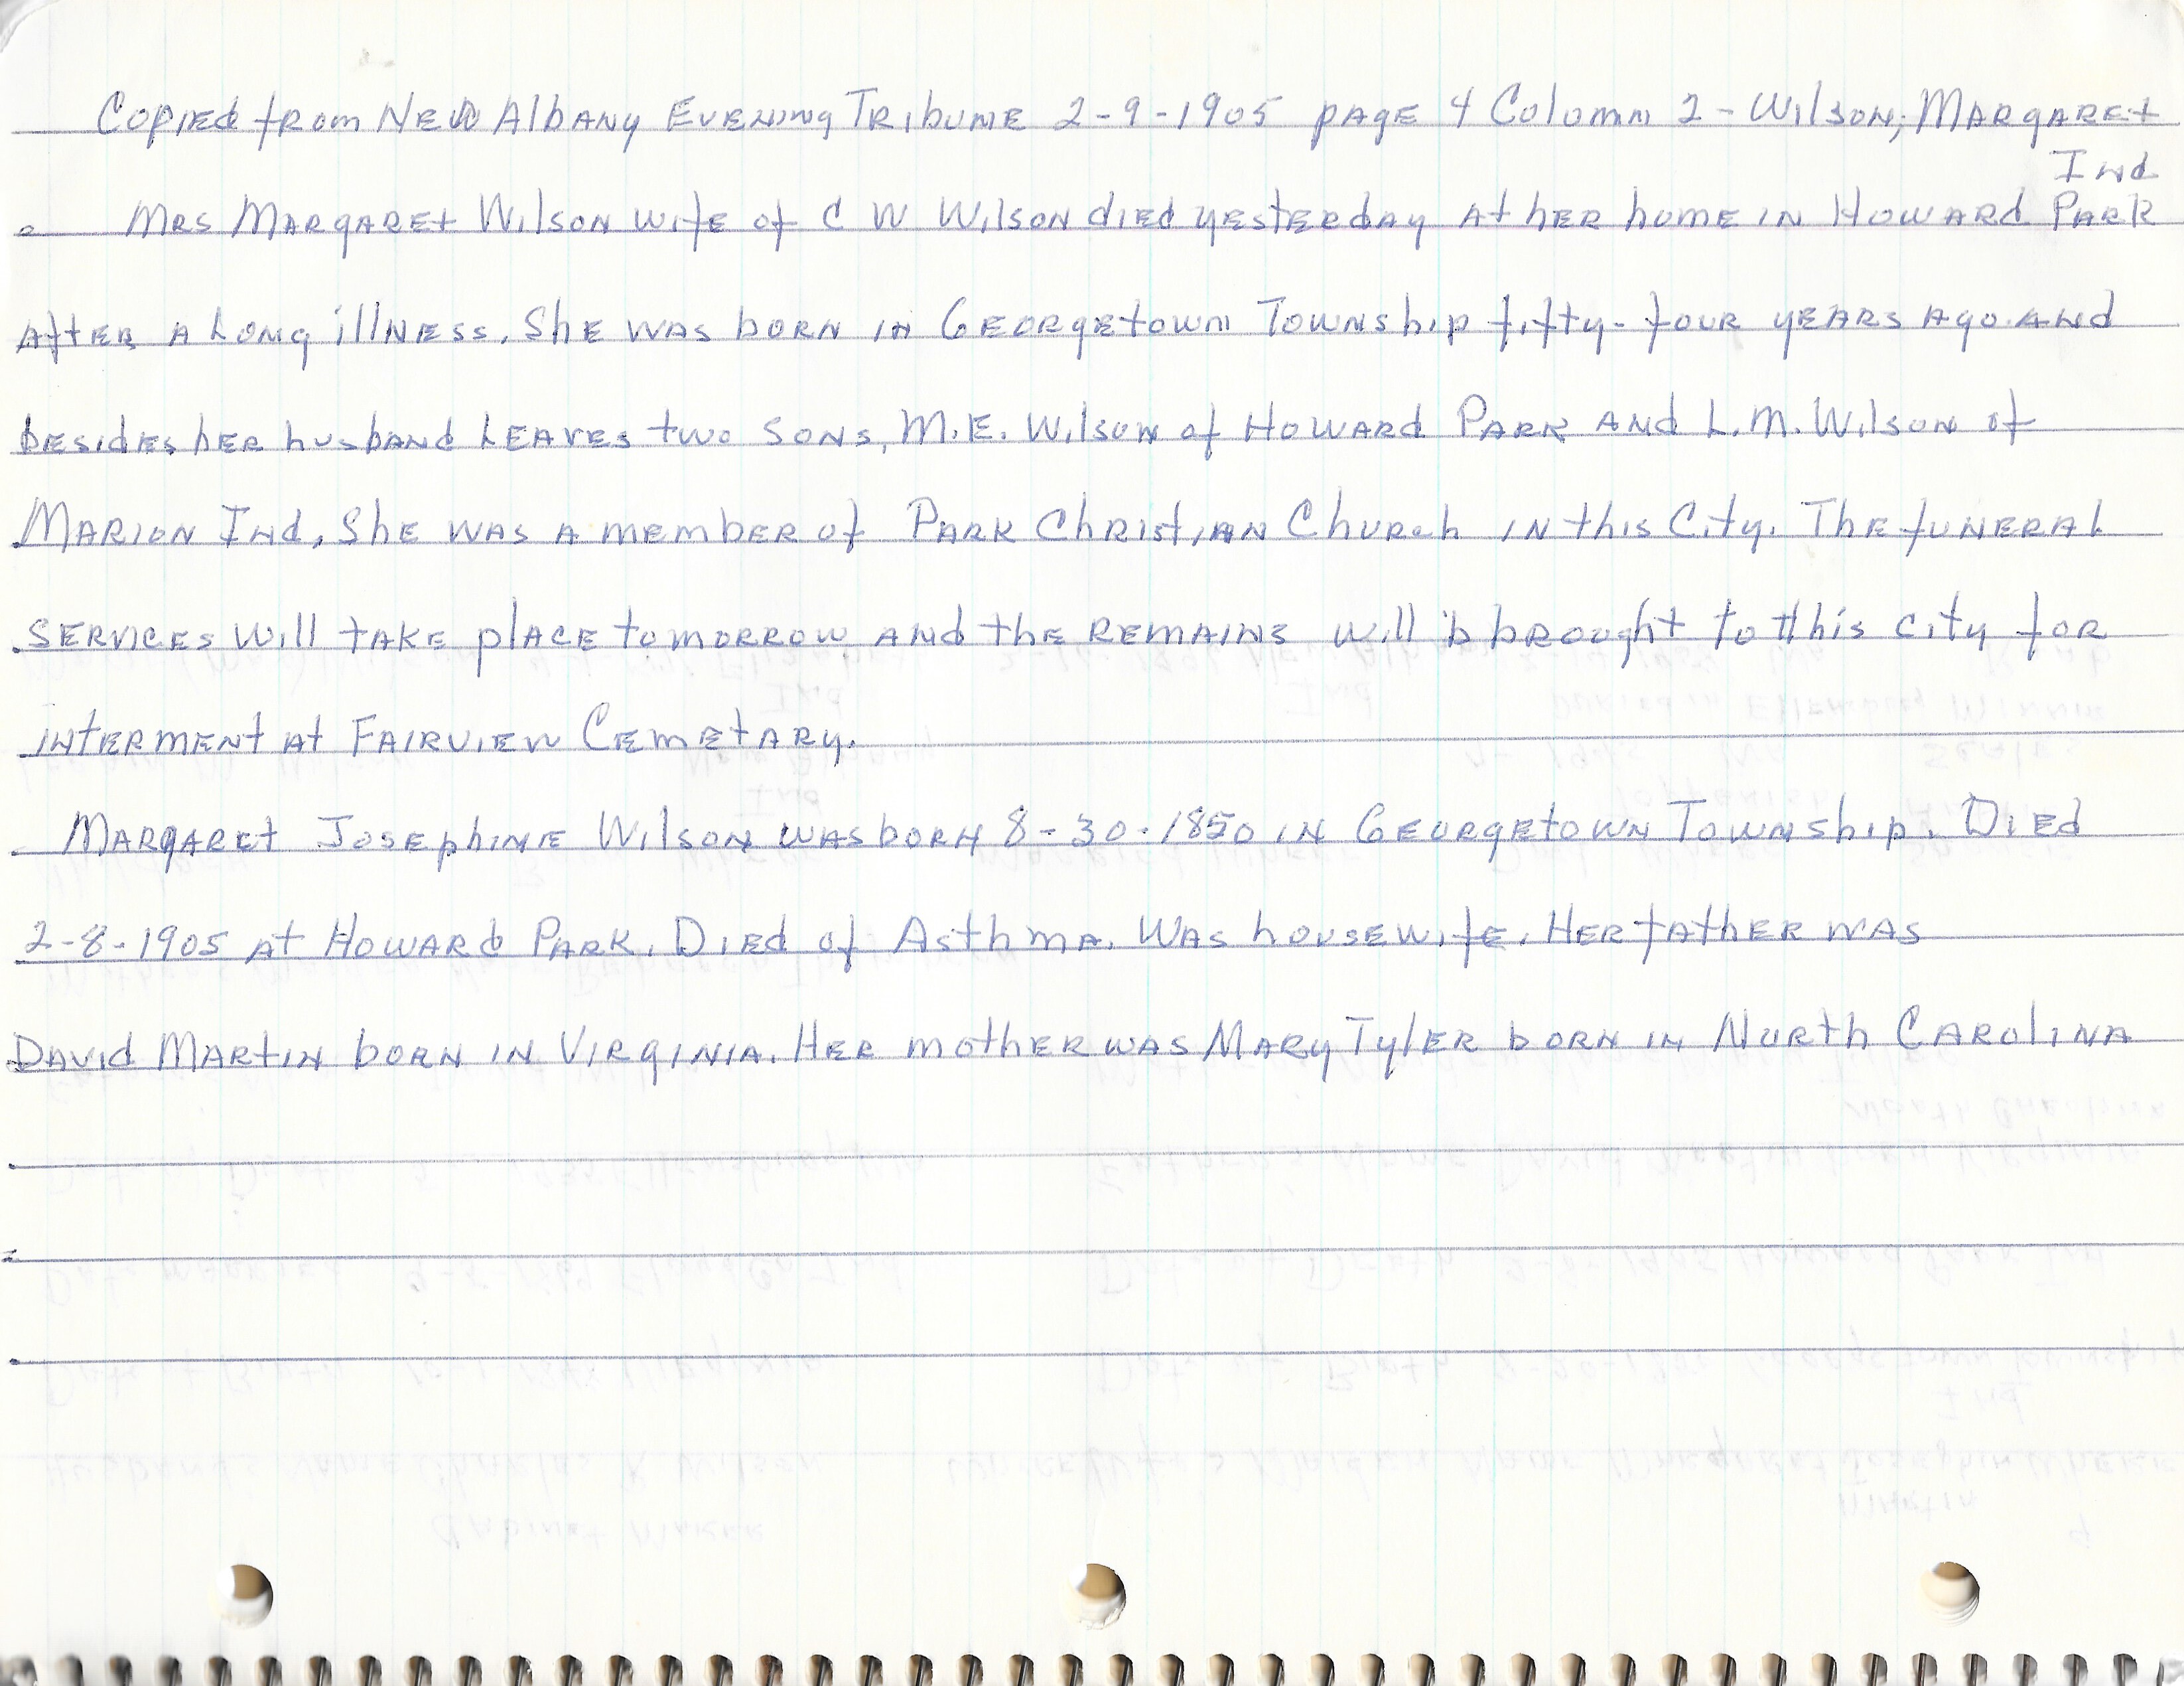 Copied from New Albany Evening Tribune 2-9-1905 page 4 Colomn 2 - Wilson; Margaret
Ind
Mrs Margaret Wilson wife of C W Wilson died yesterday at her home in Howard Park
After a Long illness. She was born in Georgetown Township fifty-four years ago and
besides her husband Leaves two sons, M.E. Wilson of Howard Park and L.M. Wilson of
Marion Ind. She was a member of Park Christian Church in this City. The funeral
services will take place tomorrow and the remains will b brought to this city for
interment at Fairview Cemetary.
Margaret Josephine Wilson was born 8-30-1850 in Georgetown Township. Died
2-8-1905 at Howard Park. Died of Asthma. Was housewife. Her father was
David Martin born in Virginia. Her mother was Mary Tyler born in North Carolina